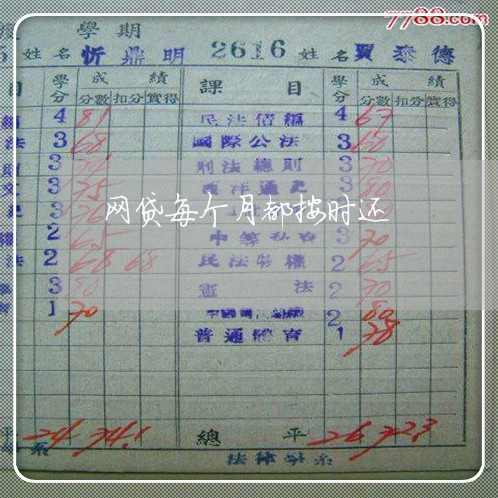 7788.com
學期
姓名 忻鼎明 2616 姓名 賈泰德
目 學分 成績 課目 學分 成績
分數 扣分 實得 分數 扣分 實得
4 81 民法債編 4 67
法 3 68 國際公法 3 60
3 刑法總則 3 70
文 3 75 西洋通史 3 80
网贷每个月都按时还
3 76 3
權 2 65 3 70
法 2 68 68 民法物權 2 65
3 80 憲法 2 70
育 1 70 2 80
普通體育 1 78
平 24 74.1 總平 26 72.3
系 法律學系